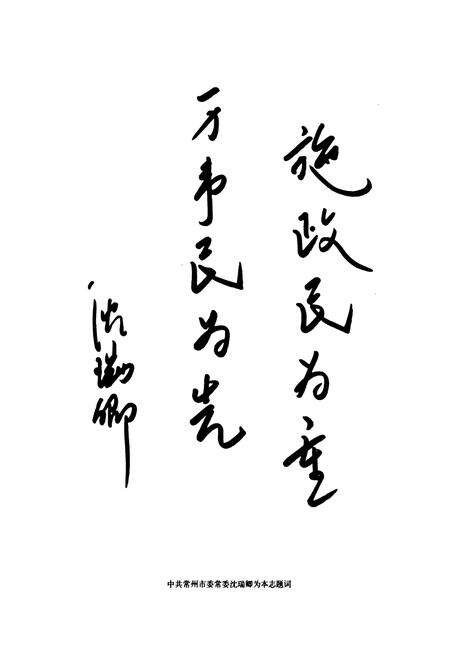 施政民为重
万事民为先
沈瑞卿
中共常州市委常委沈瑞卿为本志题词